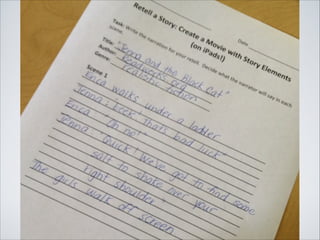 Retell a Story: Create a Movie with Story Elements
(on iPads!)
Date
Task: Write the narration for your retell. Decide what the narrator will say in each
scene.
Title: "Jenna and the Black Cat"
Author:
Genre: realistic fiction
Scene 1
Erica walks under a ladder
Jenna: Eeek! That's bad luck"
Erica "Oh no!"
Jenna "Quick! We've got to find some
salt to shake over your
right shoulder"
The girls walk off screen